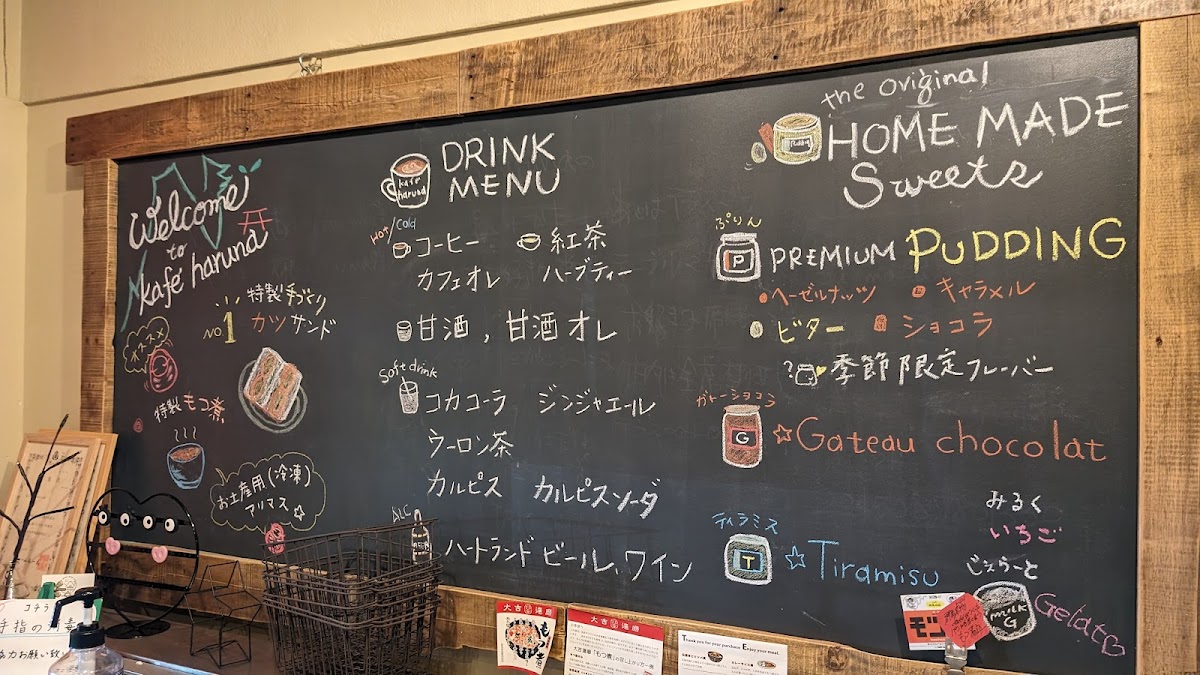 Welcome
to
kafe haruna
オススメ
No.1
特製手づくり
カツサンド
特製もつ煮
お土産用(冷凍)
アリマス☆
kafe
haruna
DRINK
MENU
Hot/Cold
コーヒー 紅茶
カフェオレ ハーブティー
甘酒, 甘酒オレ
Soft drink
コカコーラ ジンジャエール
ウーロン茶
カルピス カルピスソーダ
ALC
ハートランドビール、ワイン
the original
HOME MADE
Sweets
ぷりん
P
PREMIUM PUDDING
ヘーゼルナッツ キャラメル
ビター ショコラ
?季節限定フレーバー
ガトーショコラ
G
☆Gateau chocolat
ティラミス
T
☆Tiramisu
みるく
いちご
じぇらーと
MILK
G
Gelato
手指の
大吉湯麿
もつ煮
大吉湯麿
Thank you for your purchase. Enjoy your meal.
モニ